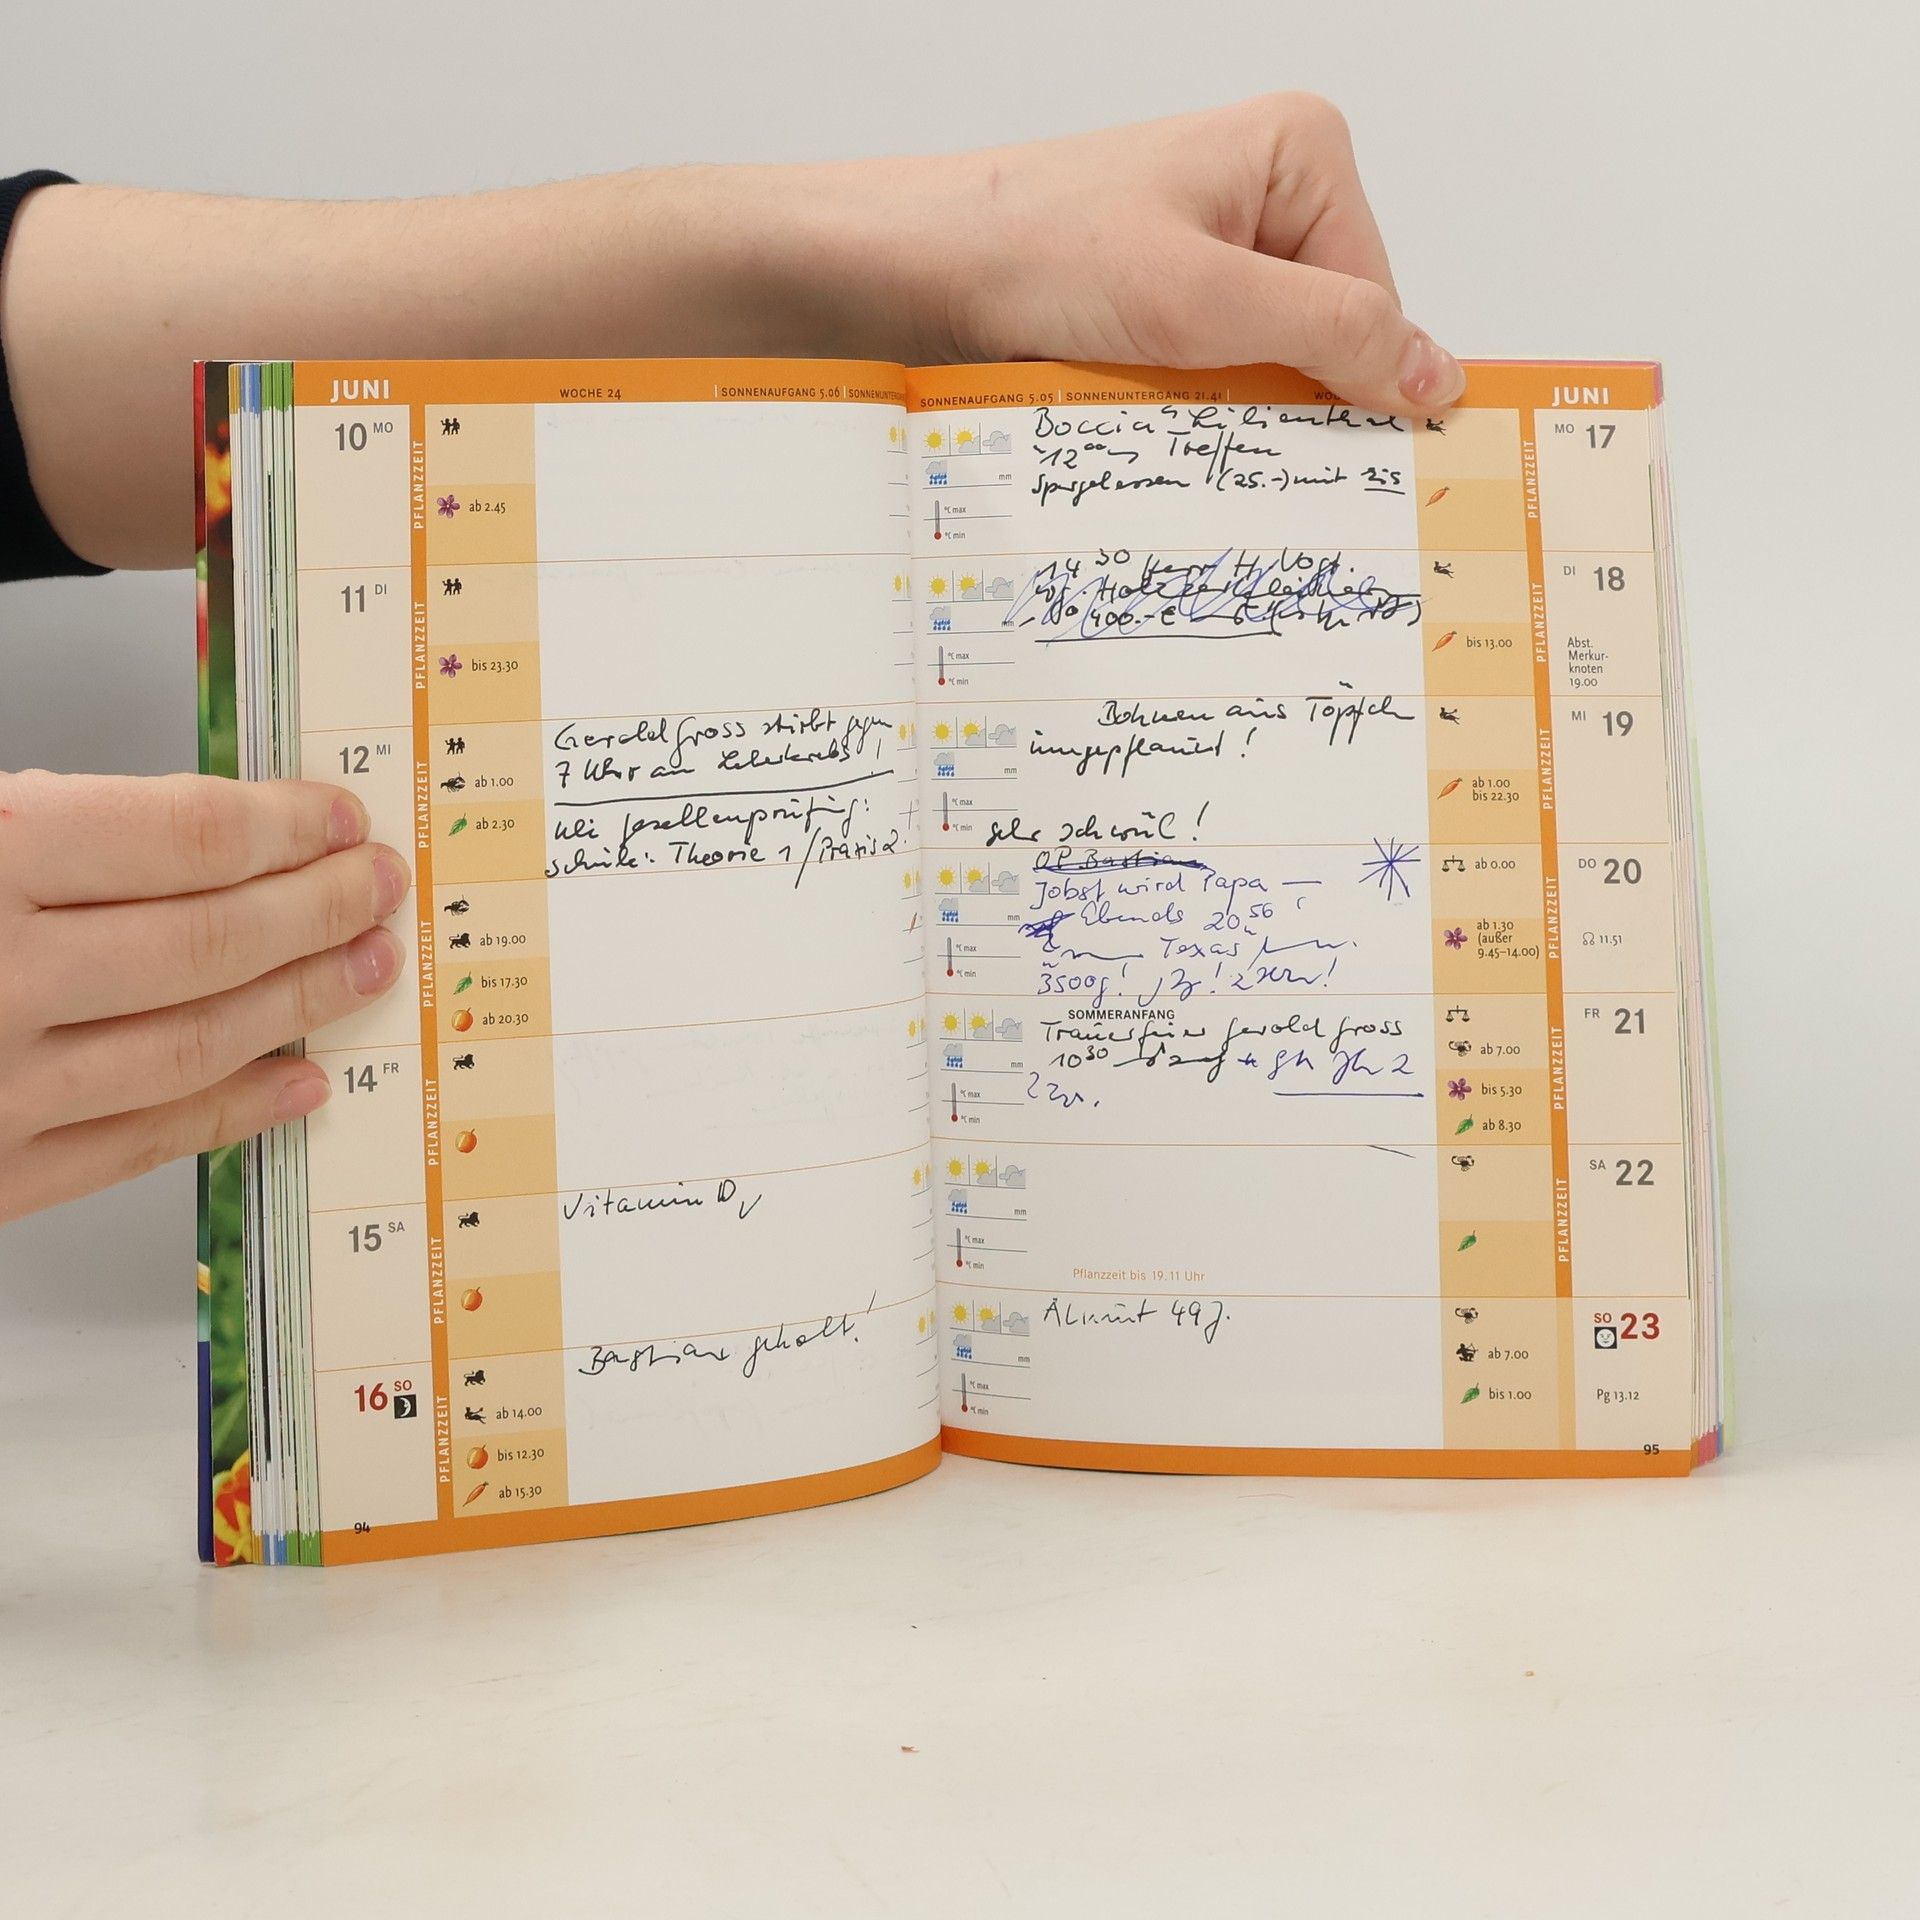 JUNI
WOCHE 24 | SONNENAUFGANG 5.06 |
10 MO
PFLANZZEIT
ab 2.45
11 DI
PFLANZZEIT
bis 23.30
12 MI
PFLANZZEIT
ab 1.00
ab 2.30
Gerold Gross stirbt gegen
7 Uhr am Leberkrebs!
Gesellenprüfung:
Theorie 1/Praxis 2.
PFLANZZEIT
ab 19.00
bis 17.30
ab 20.30
14 FR
PFLANZZEIT
15 SA
PFLANZZEIT
Vitamin D
16 SO
PFLANZZEIT
ab 14.00
bis 12.30
ab 15.30
Bastian geholt!
94
SONNENAUFGANG 5.05 | SONNENUNTERGANG 21.41 |
JUNI
Boccia Lilienthal
12 Treffen
Spargelessen (25.-) mit
mm
°C max
°C min
MO 17
PFLANZZEIT
14 30 Herr H. Vogt.
400.-€
mm
°C max
°C min
bis 13.00
DI 18
PFLANZZEIT
Abst.
Merkur-
knoten
19.00
Bohnen aus Töpfch
umgepflanzt!
sehr schwül!
mm
°C max
°C min
ab 1.00
bis 22.30
MI 19
PFLANZZEIT
OP Bastian
Jobst wird Papa —
20 56
Texas
3500g!
mm
°C max
°C min
ab 0.00
ab 1.30
(außer
9.45–14.00)
DO 20
PFLANZZEIT
☊ 11.51
SOMMERANFANG
Trauerfeier Gerold Gross
10 30
mm
°C max
°C min
ab 7.00
bis 5.30
ab 8.30
FR 21
PFLANZZEIT
mm
°C max
°C min
Pflanzzeit bis 19.11 Uhr
SA 22
PFLANZZEIT
49 J.
mm
°C max
°C min
ab 7.00
bis 1.00
SO 23
Pg 13.12
95